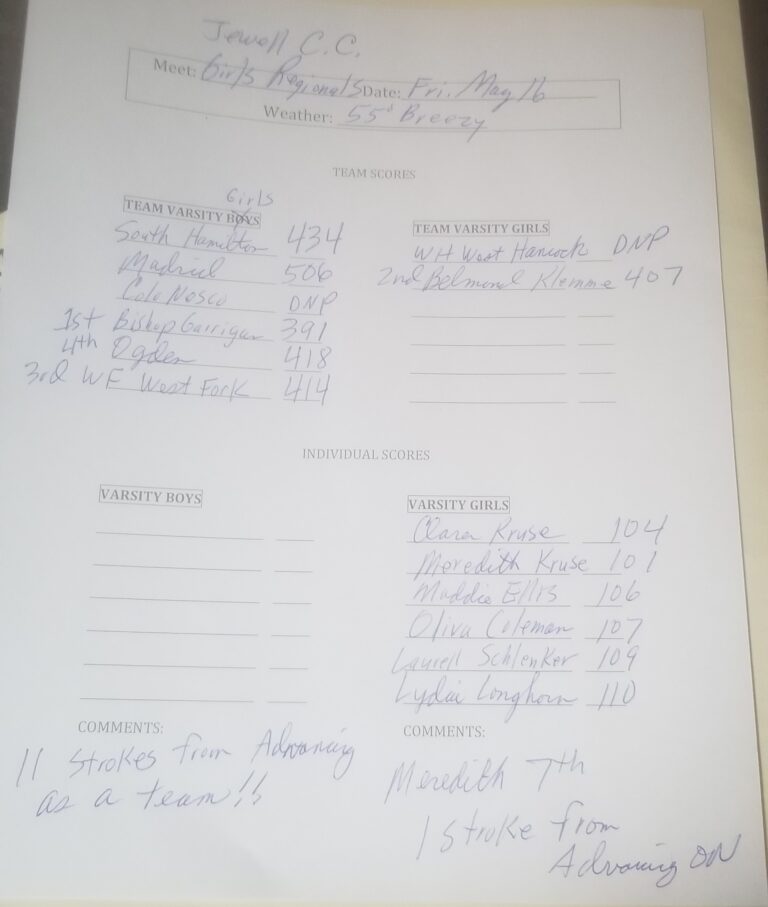 Jewell C.C.
Meet: Girls Regionals Date: Fri. May 16
Weather: 55° Breezy
TEAM SCORES
Girls
TEAM VARSITY BOYS
South Hamilton 434
Madrid 506
Colo Nesco DNP
1st Bishop Garrigan 391
4th Ogden 418
3rd WF West Fork 414
TEAM VARSITY GIRLS
WH West Hancock DNP
2nd Belmond Klemme 407
INDIVIDUAL SCORES
VARSITY BOYS
VARSITY GIRLS
Clara Kruse 104
Meredith Kruse 101
Maddie 106
Oliva Coleman 107
Laurell Schlenker 109
Lydia Longhorn 110
COMMENTS:
11 Strokes from Advancing
as a team!!
COMMENTS:
Meredith 7th
1 Stroke from
Advancing ON